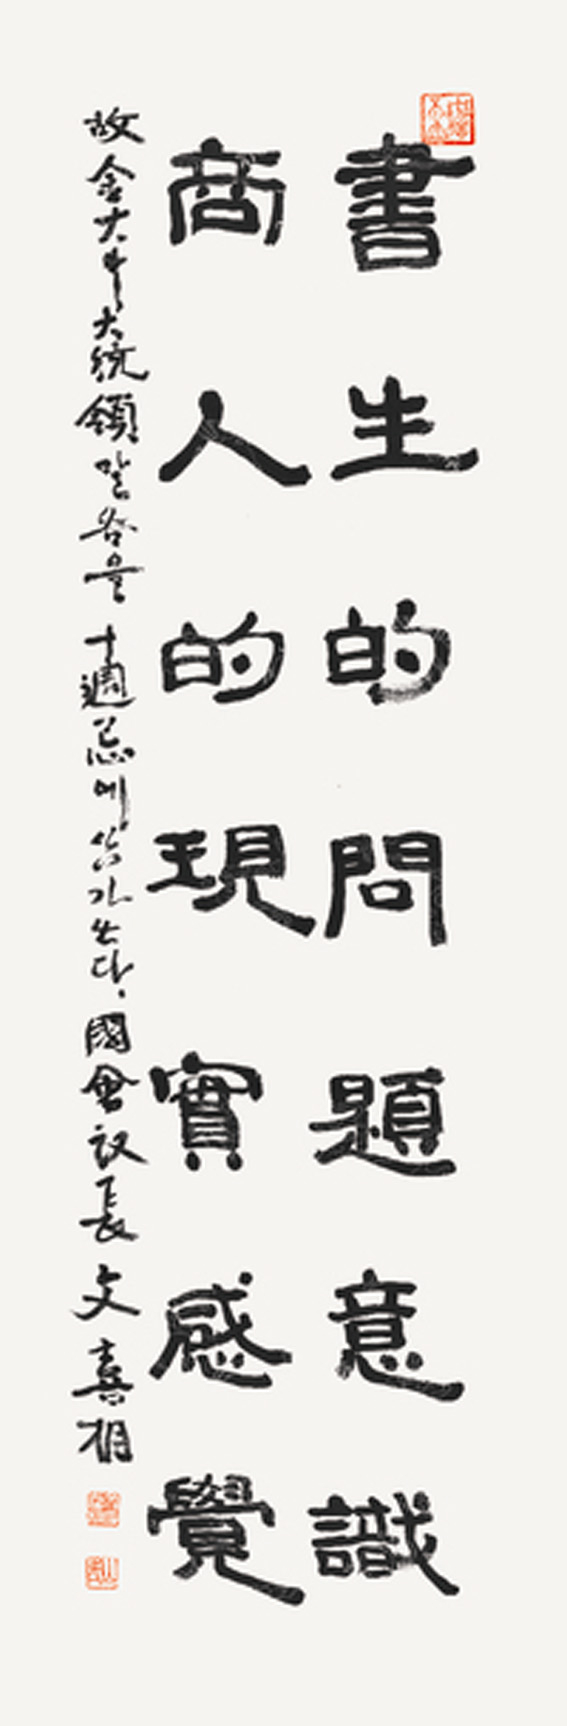 書生的問題意識
商人的現實感覺
故金大中大統領 말씀을 十週忌에 삼가 쓰다. 國會議長 文喜相